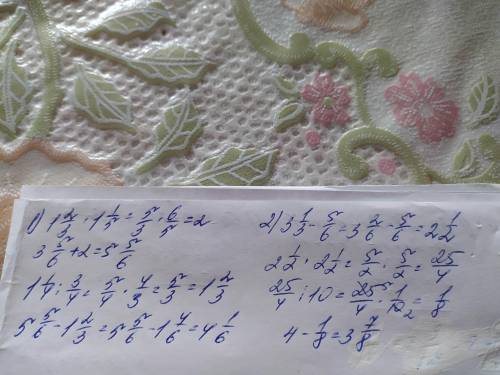 1) 1 2/3 · 1 1/5 = 5/3 · 6/5 = 2
3 5/6 + 2 = 5 5/6
1 1/4 : 3/4 = 5/4 · 4/3 = 5/3 = 1 2/3
5 5/6 - 1 2/3 = 5 5/6 - 1 4/6 = 4 1/6
2) 3 1/3 - 5/6 = 3 2/6 - 5/6 = 2 1/2
2 1/2 · 2 1/2 = 5/2 · 5/2 = 25/4
25/4 : 10 = 25/4 · 1/10 2 = 1/8
4 - 1/8 = 3 7/8